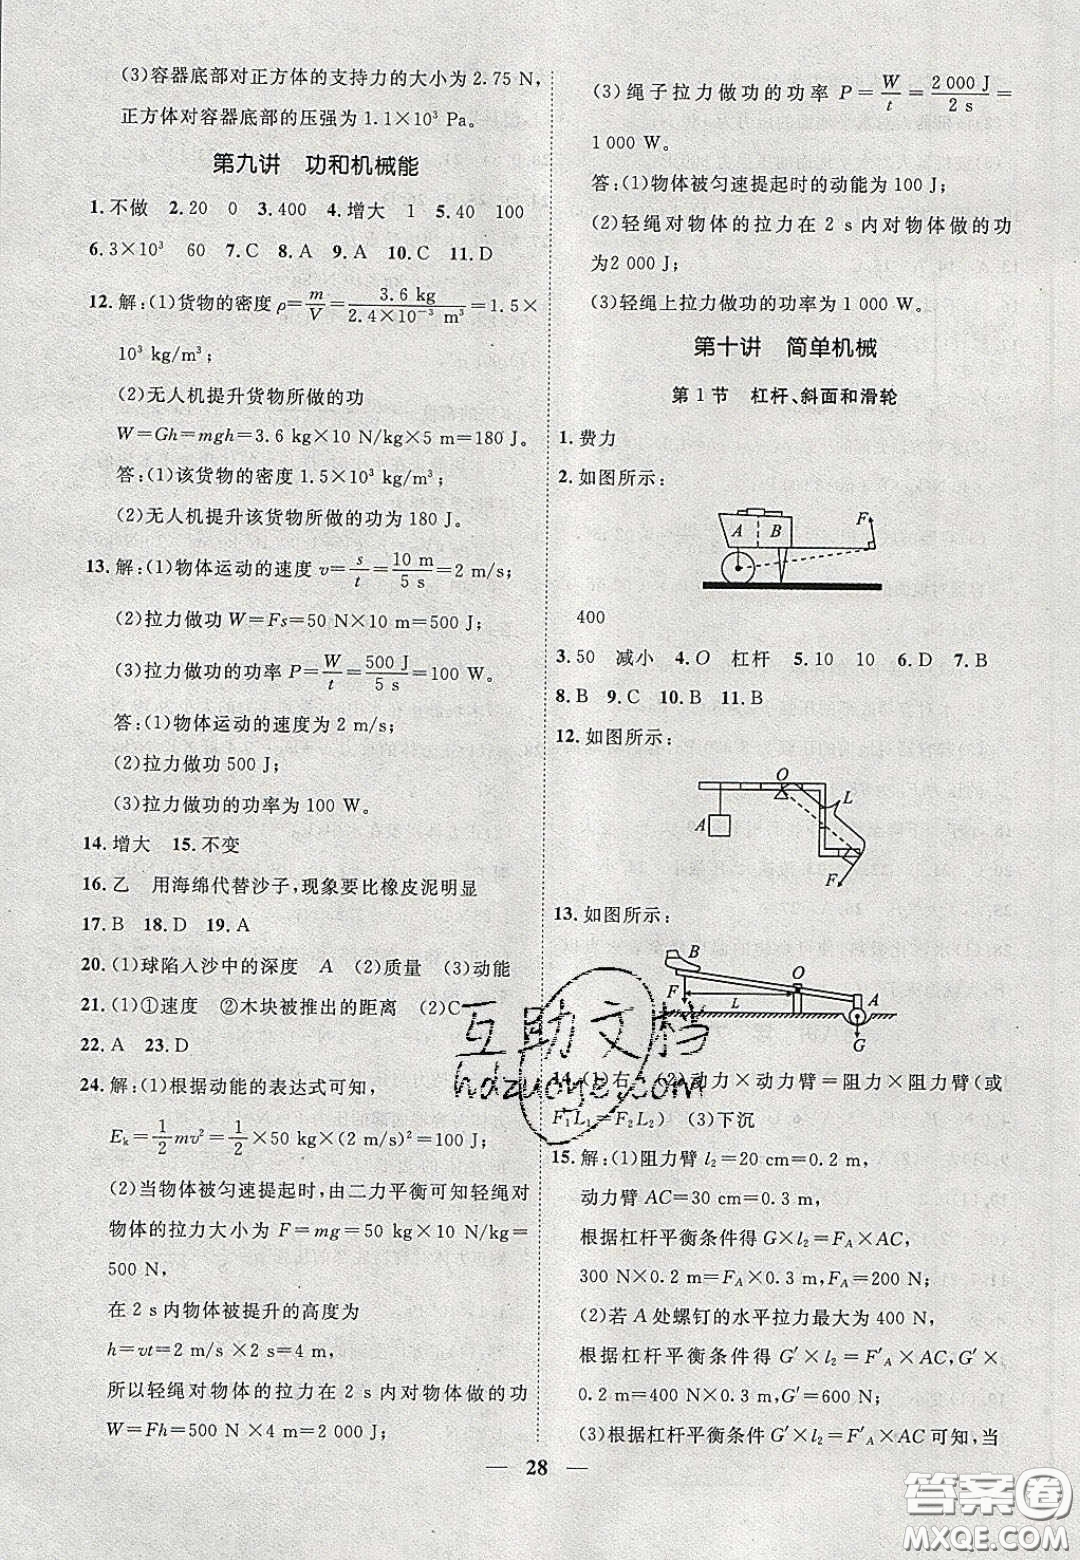 (3)容器底部对正方体的支持力的大小为 2.75 N，
正方体对容器底部的压强为 1.1×10³ Pa。
第九讲 功和机械能
1.不做 2.20 0 3.400 4.增大 1 5.40 100
6.3×10³ 60 7.C 8.A 9.A 10.C 11.D
12.解：(1)货物的密度 ρ=m/V=3.6 kg/2.4×10⁻³ m³=1.5×
10³ kg/m³；
(2)无人机提升货物所做的功
W=Gh=mgh=3.6 kg×10 N/kg×5 m=180 J。
答：(1)该货物的密度 1.5×10³ kg/m³；
(2)无人机提升该货物所做的功为 180 J。
13.解：(1)物体运动的速度 v=s/t=10 m/5 s=2 m/s；
(2)拉力做功 W=Fs=50 N×10 m=500 J；
(3)拉力做功的功率 P=W/t=500 J/5 s=100 W。
答：(1)物体运动的速度为 2 m/s；
(2)拉力做功 500 J；
(3)拉力做功的功率为 100 W。
14.增大 15.不变
16.乙 用海绵代替沙子，现象要比橡皮泥明显
17.B 18.D 19.A
20.(1)球陷入沙中的深度 A (2)质量 (3)动能
21.(1)①速度 ②木块被推出的距离 (2)C
22.A 23.D
24.解：(1)根据动能的表达式可知，
Eₖ=1/2mv²=1/2×50 kg×(2 m/s)²=100 J；
(2)当物体被匀速提起时，由二力平衡可知轻绳对
物体的拉力大小为 F=mg=50 kg×10 N/kg=
500 N，
在 2 s 内物体被提升的高度为
h=vt=2 m/s×2 s=4 m，
所以轻绳对物体的拉力在 2 s 内对物体做的功
W=Fh=500 N×4 m=2 000 J；
(3)绳子拉力做功的功率 P=W/t=2 000 J/2 s=
1 000 W。
答：(1)物体被匀速提起时的动能为 100 J；
(2)轻绳对物体的拉力在 2 s 内对物体做的功
为2 000 J；
(3)轻绳上拉力做功的功率为 1 000 W。
第十讲 简单机械
第 1 节 杠杆、斜面和滑轮
1.费力
2.如图所示：
A B F
400
3.50 减小 4.O 杠杆 5.10 10 6.D 7.B
8.B 9.C 10.B 11.B
12.如图所示：
O L A F
13.如图所示：
B O A F L G
14.(1)右 (2)动力×动力臂=阻力×阻力臂(或
F₁L₁=F₂L₂) (3)下沉
15.解：(1)阻力臂 l₂=20 cm=0.2 m，
动力臂 AC=30 cm=0.3 m，
根据杠杆平衡条件得 G×l₂=F_A×AC，
300 N×0.2 m=F_A×0.3 m，F_A=200 N；
(2)若 A 处螺钉的水平拉力最大为 400 N，
根据杠杆平衡条件得 G′×l₂=F′_A×AC，G′×
0.2 m=400 N×0.3 m，G′=600 N；
(3)根据杠杆平衡条件 G′×l₂=F′_A×AC可知，当
28
互助文档
hdzuoye.com
答案圈
MXQE.COM